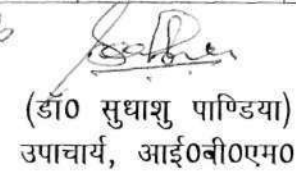 (डॉ0 सुधाशु पाण्डिया)
उपाचार्य, आई0बी0एम0